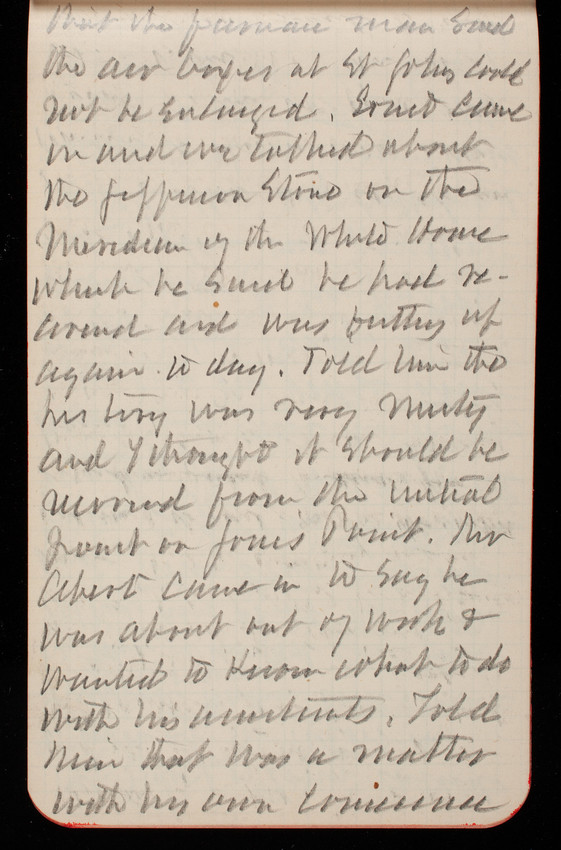 that the furnace man said
the air boxes at St Johns could
not be enlarged. Ernst came
in and we talked about
the Jefferson Stone on the
Meridian of the White House
which he said he had re-
and was putting up
again to day. Told him the
history was very musty
and I thought it should be
from the initial
point on Jones Point. Mr
Abert came in to say he
was about out of work &
wanted to know what to do
with his assistants. Told
him that was a matter
with his own conscience